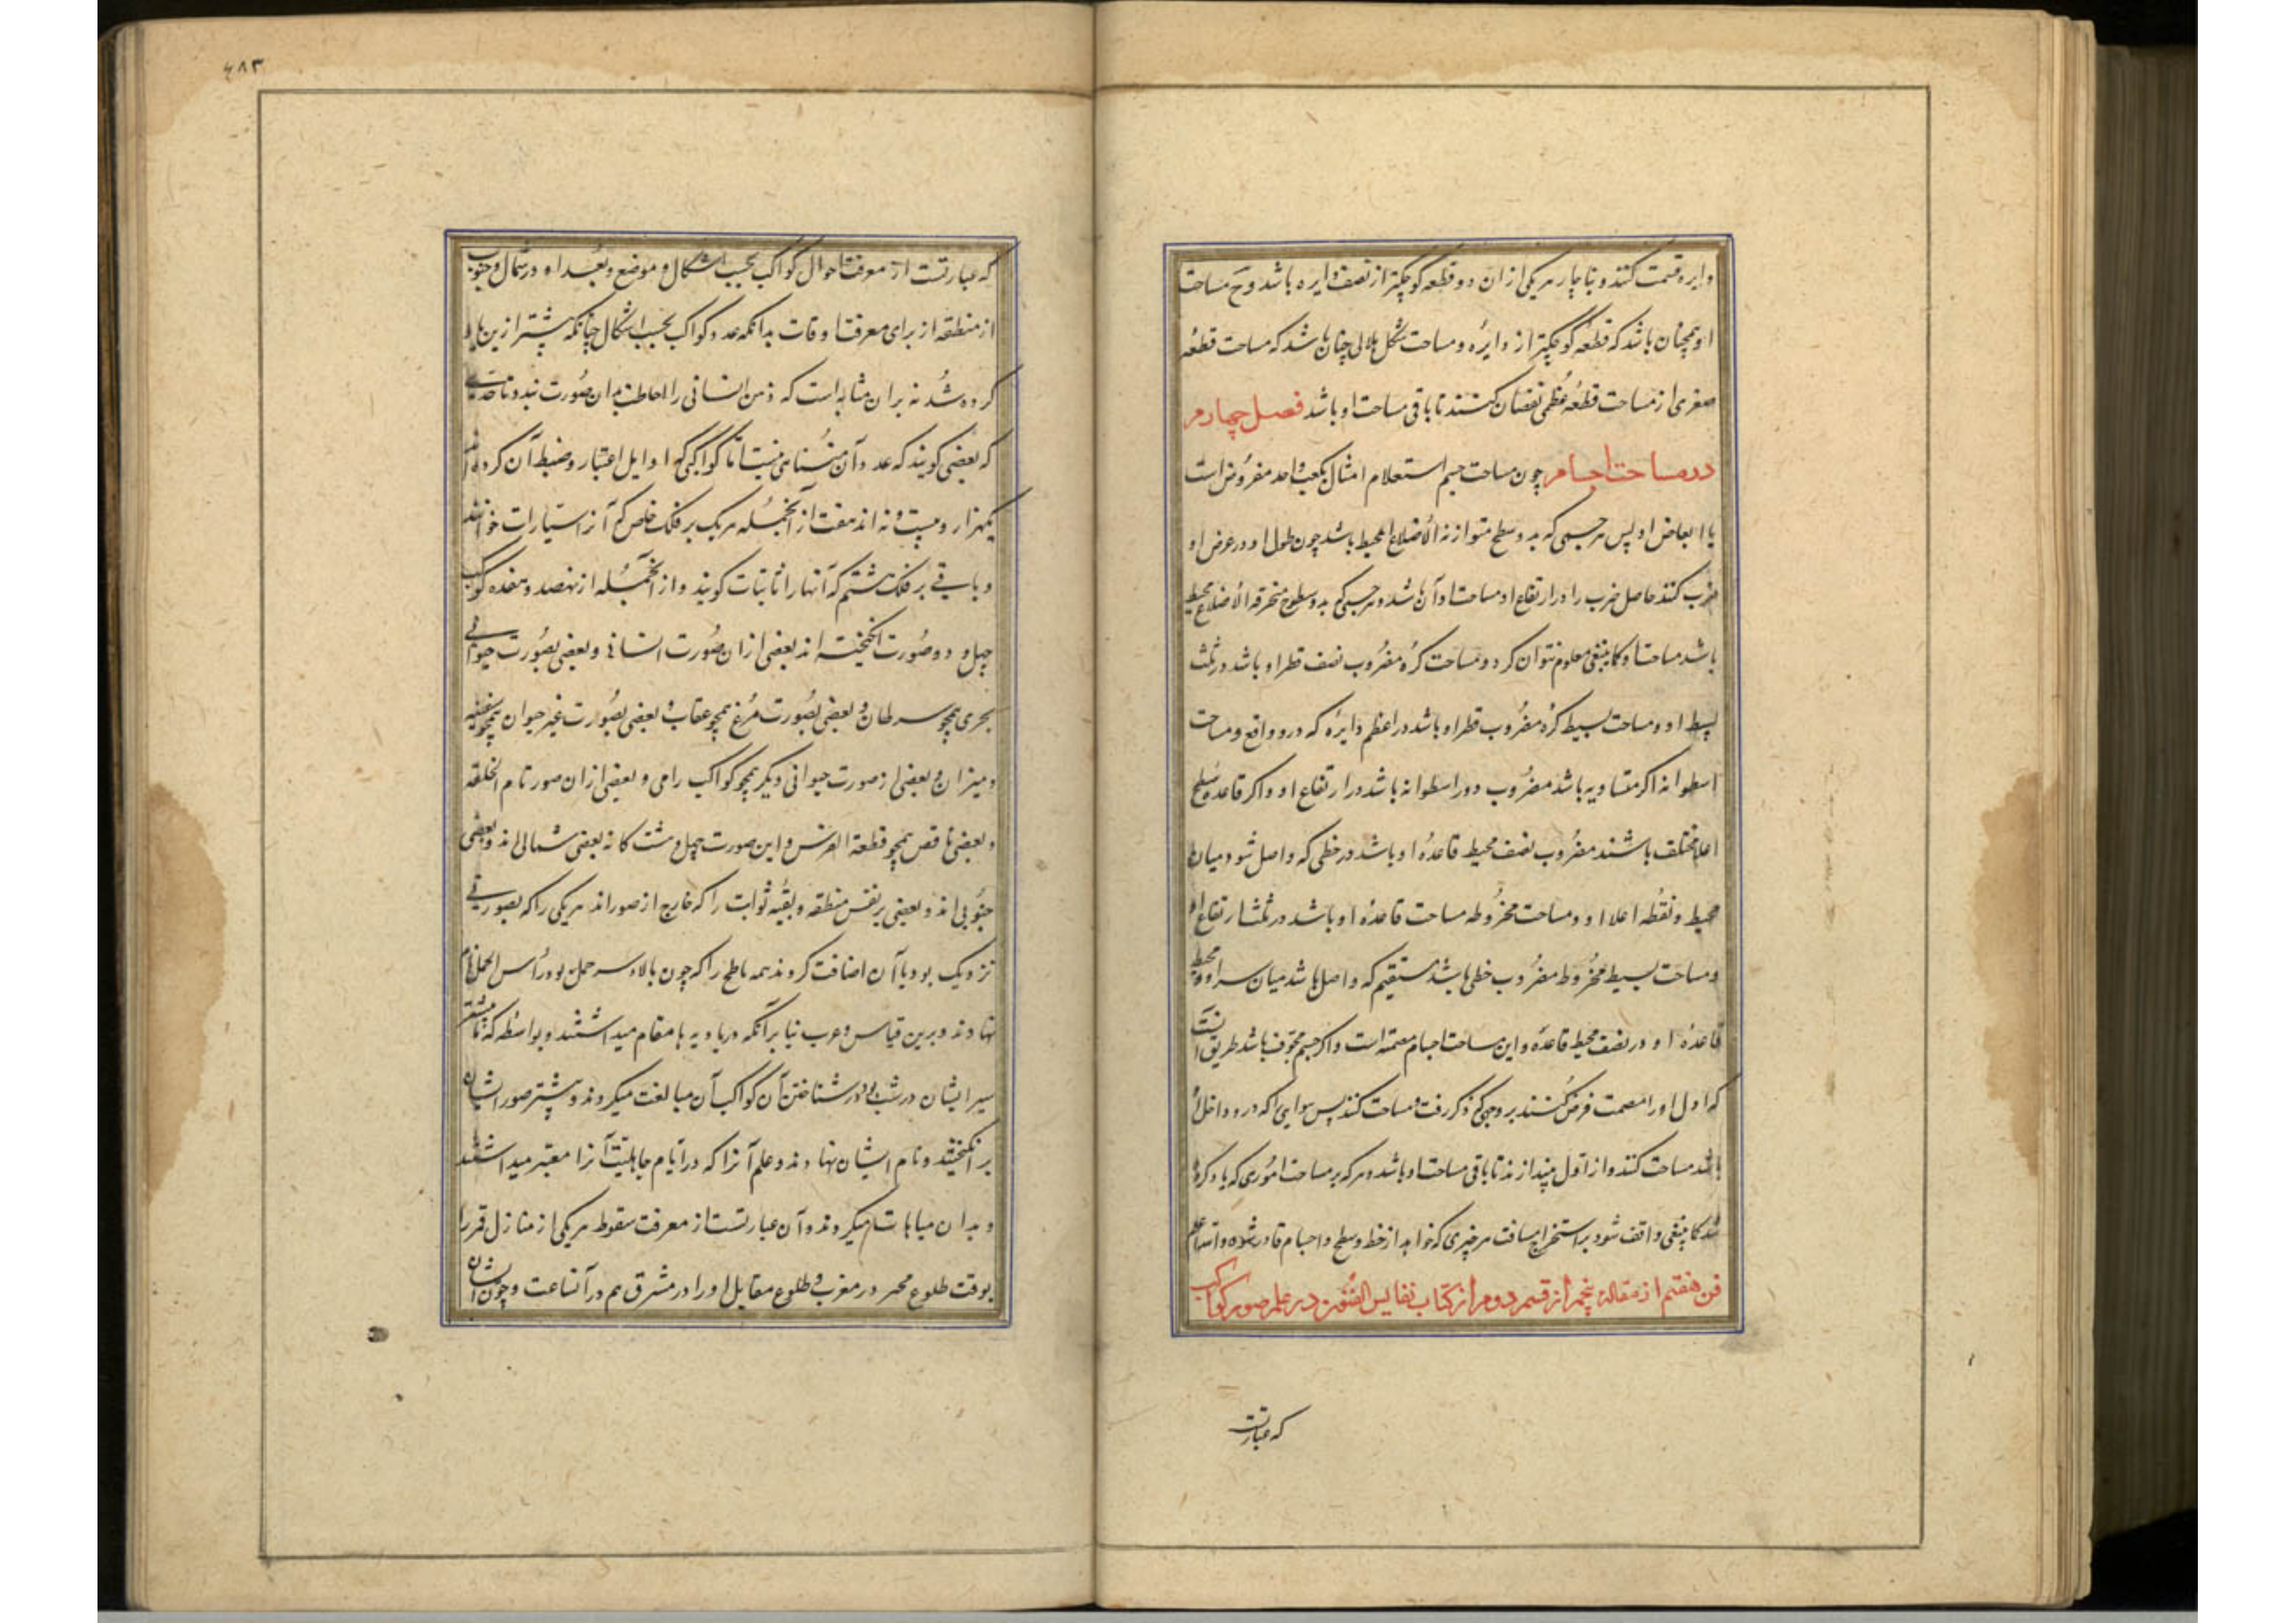 دایره قسمت کنند و بناچار هر یکی از ان دو قطعه کوچکتر از نصف دایره باشد وح مساحت
او همچنان باشد که قطعهٔ کوچکتر از دایره و مساحت شکل هلالی چنان باشد که مساحت قطعهٔ
صغری از مساحت قطعهٔ عظمی نقصان کنند تا باقی مساحت او باشد فصل چهارم
در مساحت اجسام چون مساحت جسم استعلام امثال مکعب واحد مفروض است
یا ابعاض او پس هر جسمی که بدو سطح متوازنة الاضلاع محیط باشد چون طول او در عرض او
ضرب کنند حاصل ضرب را در ارتفاع او مساحت او آن باشد و هر جسمی که بدو سطوح منحرفة الاضلاع محیط
باشد مساحت او کما ینبغی معلوم نتوان کرد و مساحت کره مضروب نصف قطر او باشد در ثلث
بسیط او و مساحت بسیط کره مضروب قطر او باشد در اعظم دایره که درو واقع و مساحت
اسطوانه اگر متساویه باشد مضروب دور اسطوانه باشد در ارتفاع او و اکر قاعده و سطح
اعلا مختلف باشند مضروب نصف محیط قاعدهٔ او باشد در خطی که واصل شود میان
محیط و نقطه اعلا او و مساحت مخروطه مساحت قاعدهٔ او باشد در ثلث ارتفاع او
و مساحت بسیط مخروط مضروب خطی باشد مستقیم که واصل باشد میان سر او و محیط
قاعدهٔ او در نصف محیط قاعده و این مساحت اجسام مصمته است و اکر جسم مجوف باشد طریق آنست
که اول اورا مصمت فرض کنند بر وجهی که ذکر رفت و مساحت کنند پس هوایی را که درو داخل
باشد مساحت کنند و از اول بیندازند تا باقی مساحت او باشد و هر که بر مساحت اموری که یاد کرده
شد کما ینبغی واقف شود بر استخراج مسافت هر چیزی که خواهد از خط و سطح و اجسام قادر شود والله اعلم
فن هفتم از مقالهٔ پنجم از قسم دوم از کتاب نفایس الفنون در علم صور کواکب
که عبارتست
٤٨٣
که عبارتست از معرفت احوال کواکب بحسب اشکال و موضع و بعد او در شمال و جنوب
از منطقه از برای معرفت اوقات بدانکه عدد کواکب بحسب اشکال چنانکه پیشتر ازین یاد
کرده شد نه بر ان مثابه است که ذهن انسانی را احاطت بدان صورت بندد تا حدی
که بعضی کویند که عدد آن متناهی نیست اما کواکبی که اوایل اعتبار و ضبط آن کرده اند
یکهزار و بیست و نه اند هفت از آنجمله هر یک بر فلک خاص که آنرا سیارات خوانند
و باقی بر فلک هشتم که آنها را ثابتات کویند و از آنجمله از نهصد و هفده کوکب
چهل و دو صورت انکیخته اند بعضی از ان صورت انسانی و بعضی بصورت حیوانی
بحری همچو سرطان و بعضی بصورت مرغ همچو عقاب و بعضی بصورت غیر حیوان همچو سفینه
و میزان و بعضی از صورت حیوانی دیکر همچو کواکب رامی و بعضی از ان صور تام الخلقه
و بعضی ناقص همچو قطعة الفرس و این صورت چهل و هشت کانه بعضی شمالی اند و بعضی
جنوبی اند و بعضی بر نفس منطقه و بقیه ثوابت را که خارج از صور اند هر یکی را که بصورتی
نزدیک بود باآن اضافت کردند همه ناطح را که چون بالاء سر حمل بود رأس الحمل نام
نهادند و برین قیاس و عرب بنا برآنکه در بادیه ها مقام میداشتند و بواسطه که
سیر ایشان در شب بود در شناختن آن کواکب آن مبالغت میکردند و بیشتر صور ایشان
بر انکیختند و نام ایشان نهادند و علم آنرا که در ایام جاهلیت آنرا معتبر میداشتند
و بدان مباهات میکردند و آن عبارتست از معرفت سقوط هر یکی از منازل قمر را
بوقت طلوع فجر در مغرب و طلوع مقابل او را در مشرق هم در آنساعت و چون ایشان